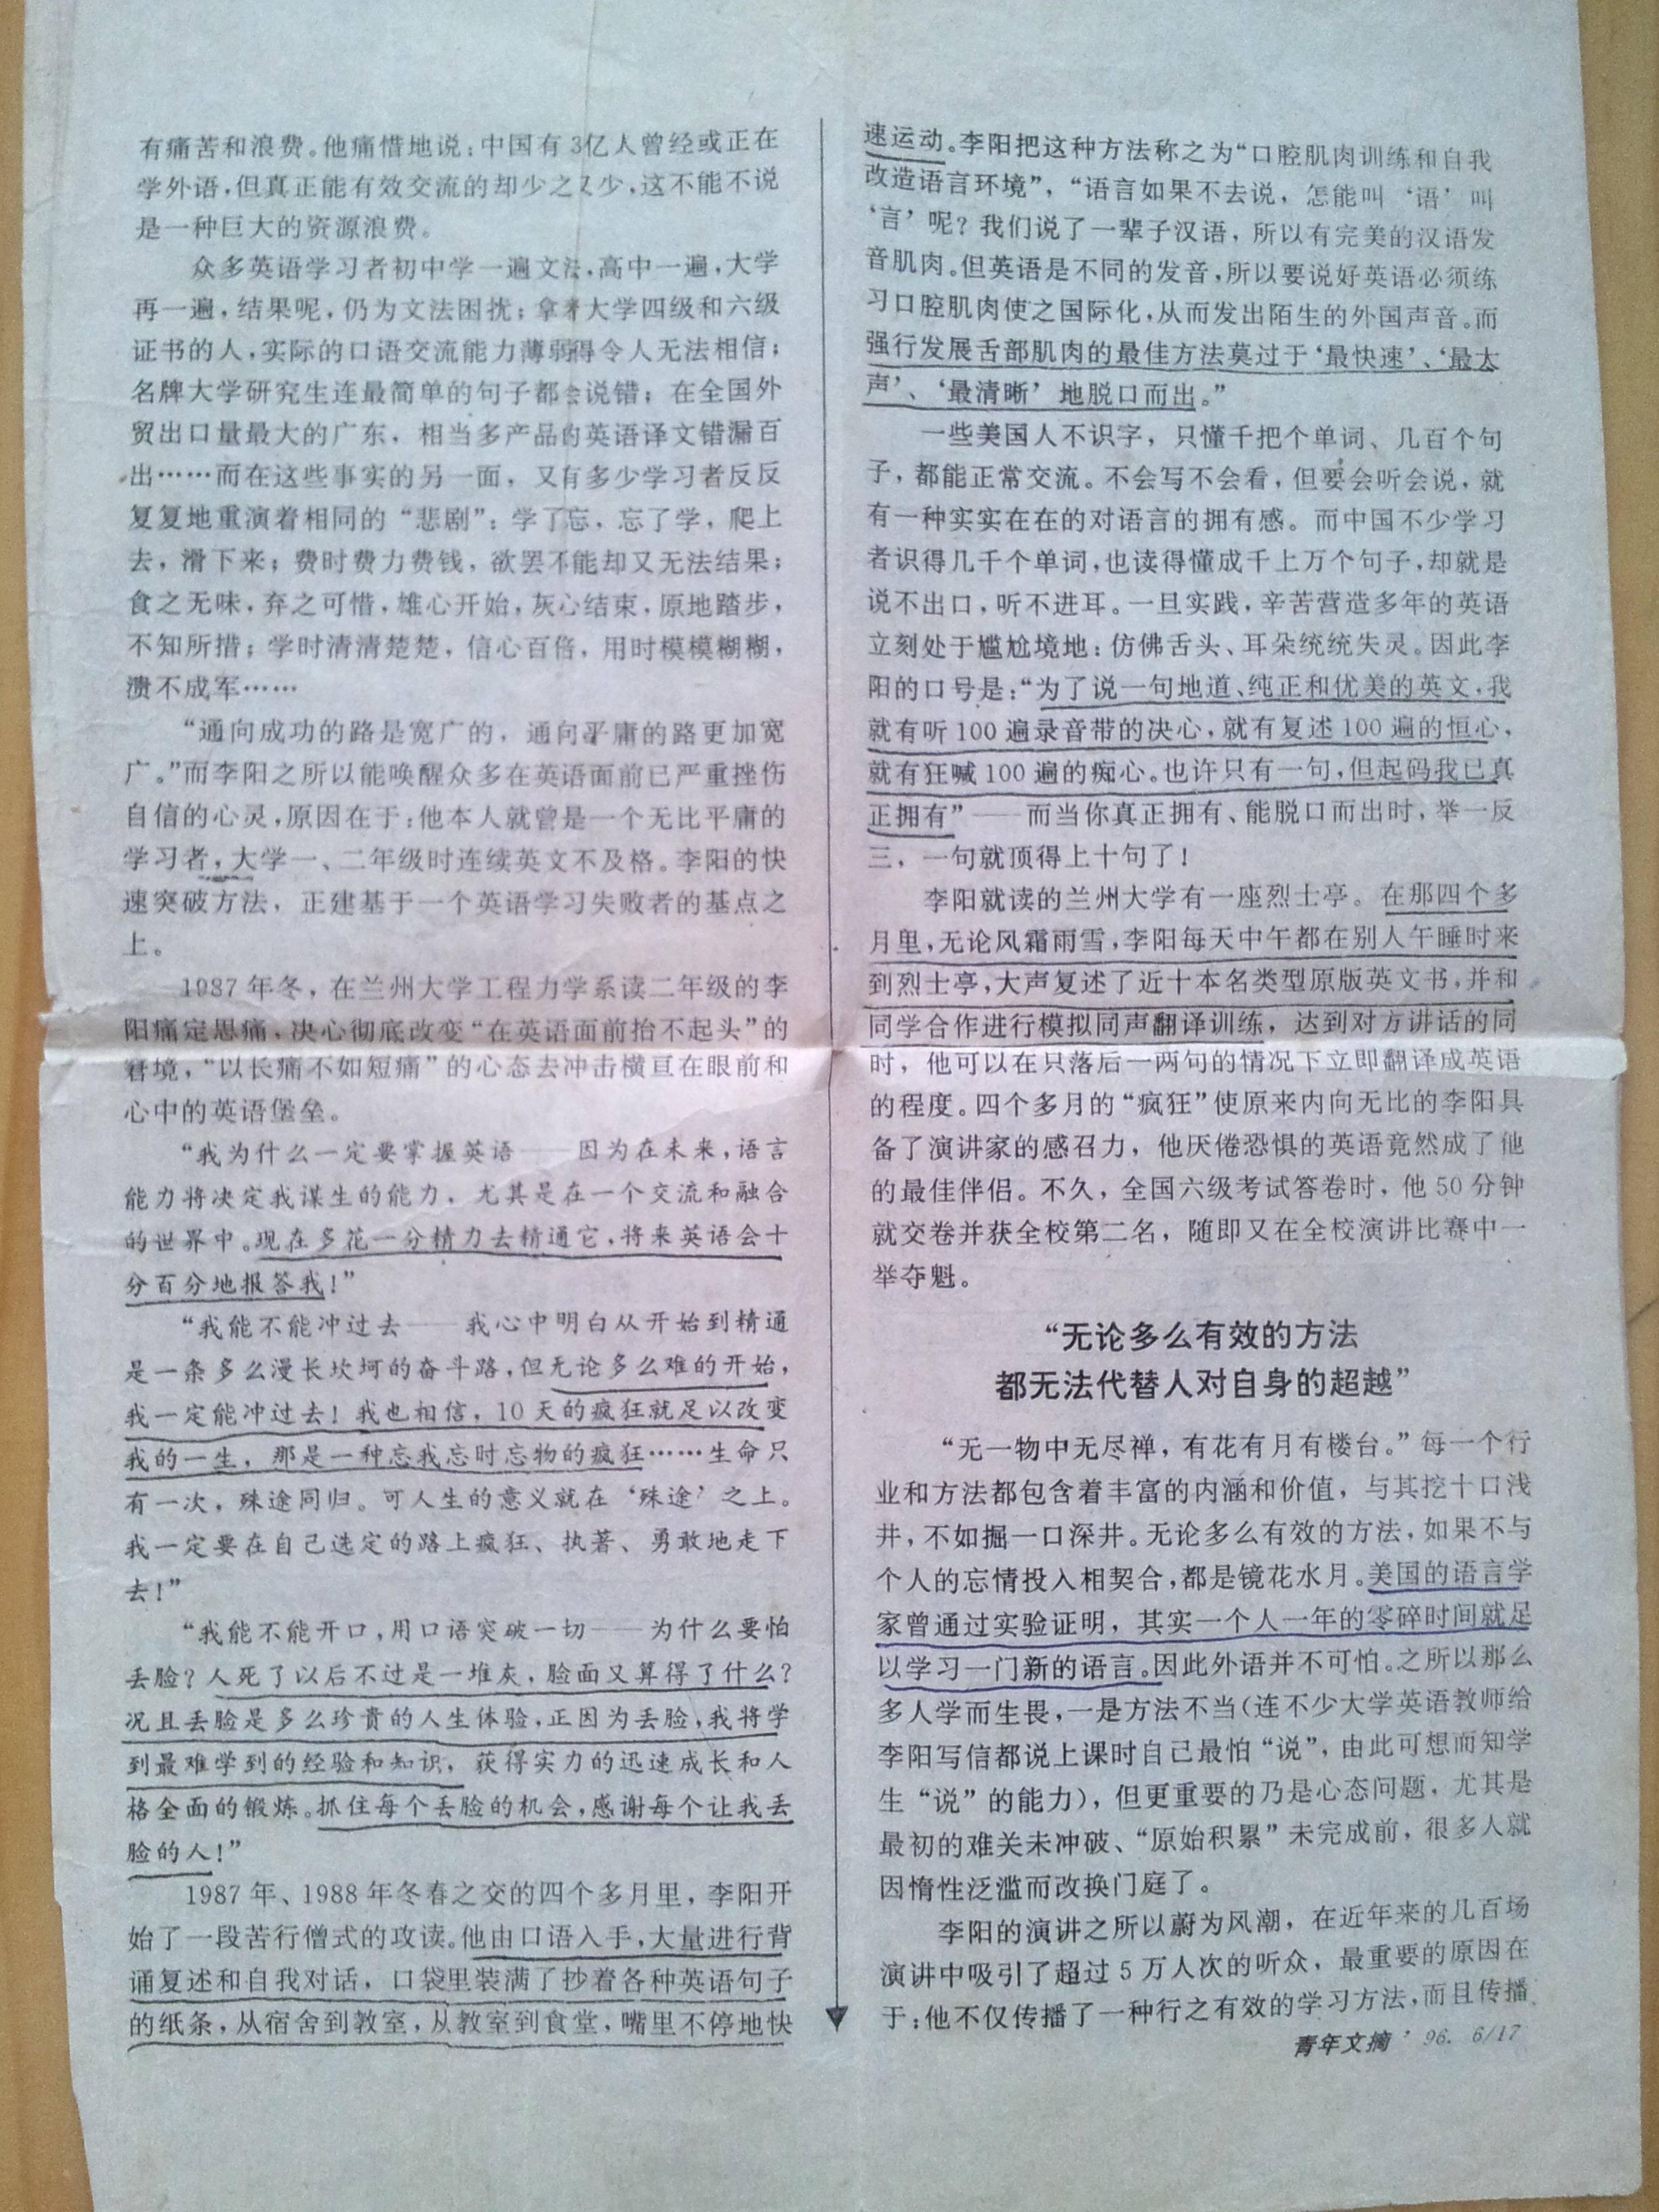 有痛苦和浪费。他痛惜地说：中国有3亿人曾经或正在
学外语，但真正能有效交流的却少之又少，这不能不说
是一种巨大的资源浪费。
众多英语学习者初中学一遍文法，高中一遍，大学
再一遍，结果呢，仍为文法困扰；拿着大学四级和六级
证书的人，实际的口语交流能力薄弱得令人无法相信；
名牌大学研究生连最简单的句子都会说错；在全国外
贸出口量最大的广东，相当多产品的英语译文错漏百
出……而在这些事实的另一面，又有多少学习者反反
复复地重演着相同的“悲剧”：学了忘，忘了学，爬上
去，滑下来；费时费力费钱，欲罢不能却又无法结果；
食之无味，弃之可惜，雄心开始，灰心结束，原地踏步，
不知所措；学时清清楚楚，信心百倍，用时模模糊糊，
溃不成军……
“通向成功的路是宽广的，通向平庸的路更加宽
广。”而李阳之所以能唤醒众多在英语面前已严重挫伤
自信的心灵，原因在于：他本人就曾是一个无比平庸的
学习者，大学一、二年级时连续英文不及格。李阳的快
速突破方法，正建基于一个英语学习失败者的基点之
上。
1987年冬，在兰州大学工程力学系读二年级的李
阳痛定思痛，决心彻底改变“在英语面前抬不起头”的
窘境，“以长痛不如短痛”的心态去冲击横亘在眼前和
心中的英语堡垒。
“我为什么一定要掌握英语——因为在未来，语言
能力将决定我谋生的能力，尤其是在一个交流和融合
的世界中。现在多花一分精力去精通它，将来英语会十
分百分地报答我！”
“我能不能冲过去——我心中明白从开始到精通
是一条多么漫长坎坷的奋斗路，但无论多么难的开始，
我一定能冲过去！我也相信，10天的疯狂就足以改变
我的一生，那是一种忘我忘时忘物的疯狂……生命只
有一次，殊途同归。可人生的意义就在‘殊途’之上。
我一定要在自己选定的路上疯狂、执著、勇敢地走下
去！”
“我能不能开口，用口语突破一切——为什么要怕
丢脸？人死了以后不过是一堆灰，脸面又算得了什么？
况且丢脸是多么珍贵的人生体验，正因为丢脸，我将学
到最难学到的经验和知识，获得实力的迅速成长和人
格全面的锻炼。抓住每个丢脸的机会，感谢每个让我丢
脸的人！”
1987年、1988年冬春之交的四个多月里，李阳开
始了一段苦行僧式的攻读。他由口语入手，大量进行背
诵复述和自我对话，口袋里装满了抄着各种英语句子
的纸条，从宿舍到教室，从教室到食堂，嘴里不停地快
速运动。李阳把这种方法称之为“口腔肌肉训练和自我
改造语言环境”，“语言如果不去说，怎能叫‘语’叫
‘言’呢？我们说了一辈子汉语，所以有完美的汉语发
音肌肉。但英语是不同的发音，所以要说好英语必须练
习口腔肌肉使之国际化，从而发出陌生的外国声音。而
强行发展舌部肌肉的最佳方法莫过于‘最快速’、‘最大
声’、‘最清晰’地脱口而出。”
一些美国人不识字，只懂千把个单词、几百个句
子，都能正常交流。不会写不会看，但要会听会说，就
有一种实实在在的对语言的拥有感。而中国不少学习
者识得几千个单词，也读得懂成千上万个句子，却就是
说不出口，听不进耳。一旦实践，辛苦营造多年的英语
立刻处于尴尬境地：仿佛舌头、耳朵统统失灵。因此李
阳的口号是：“为了说一句地道、纯正和优美的英文，我
就有听100遍录音带的决心，就有复述100遍的恒心，
就有狂喊100遍的痴心。也许只有一句，但起码我已真
正拥有”——而当你真正拥有、能脱口而出时，举一反
三，一句就顶得上十句了！
李阳就读的兰州大学有一座烈士亭。在那四个多
月里，无论风霜雨雪，李阳每天中午都在别人午睡时来
到烈士亭，大声复述了近十本各类型原版英文书，并和
同学合作进行模拟同声翻译训练，达到对方讲话的同
时，他可以在只落后一两句的情况下立即翻译成英语
的程度。四个多月的“疯狂”使原来内向无比的李阳具
备了演讲家的感召力，他厌倦恐惧的英语竟然成了他
的最佳伴侣。不久，全国六级考试答卷时，他50分钟
就交卷并获全校第二名，随即又在全校演讲比赛中一
举夺魁。
“无论多么有效的方法
都无法代替人对自身的超越”
“无一物中无尽禅，有花有月有楼台。”每一个行
业和方法都包含着丰富的内涵和价值，与其挖十口浅
井，不如掘一口深井。无论多么有效的方法，如果不与
个人的忘情投入相契合，都是镜花水月。美国的语言学
家曾通过实验证明，其实一个人一年的零碎时间就足
以学习一门新的语言。因此外语并不可怕。之所以那么
多人学而生畏，一是方法不当（连不少大学英语教师给
李阳写信都说上课时自己最怕“说”，由此可想而知学
生“说”的能力），但更重要的乃是心态问题，尤其是
最初的难关未冲破、“原始积累”未完成前，很多人就
因惰性泛滥而改换门庭了。
李阳的演讲之所以蔚为风潮，在近年来的几百场
演讲中吸引了超过5万人次的听众，最重要的原因在
于：他不仅传播了一种行之有效的学习方法，而且传播
青年文摘’96．6/17